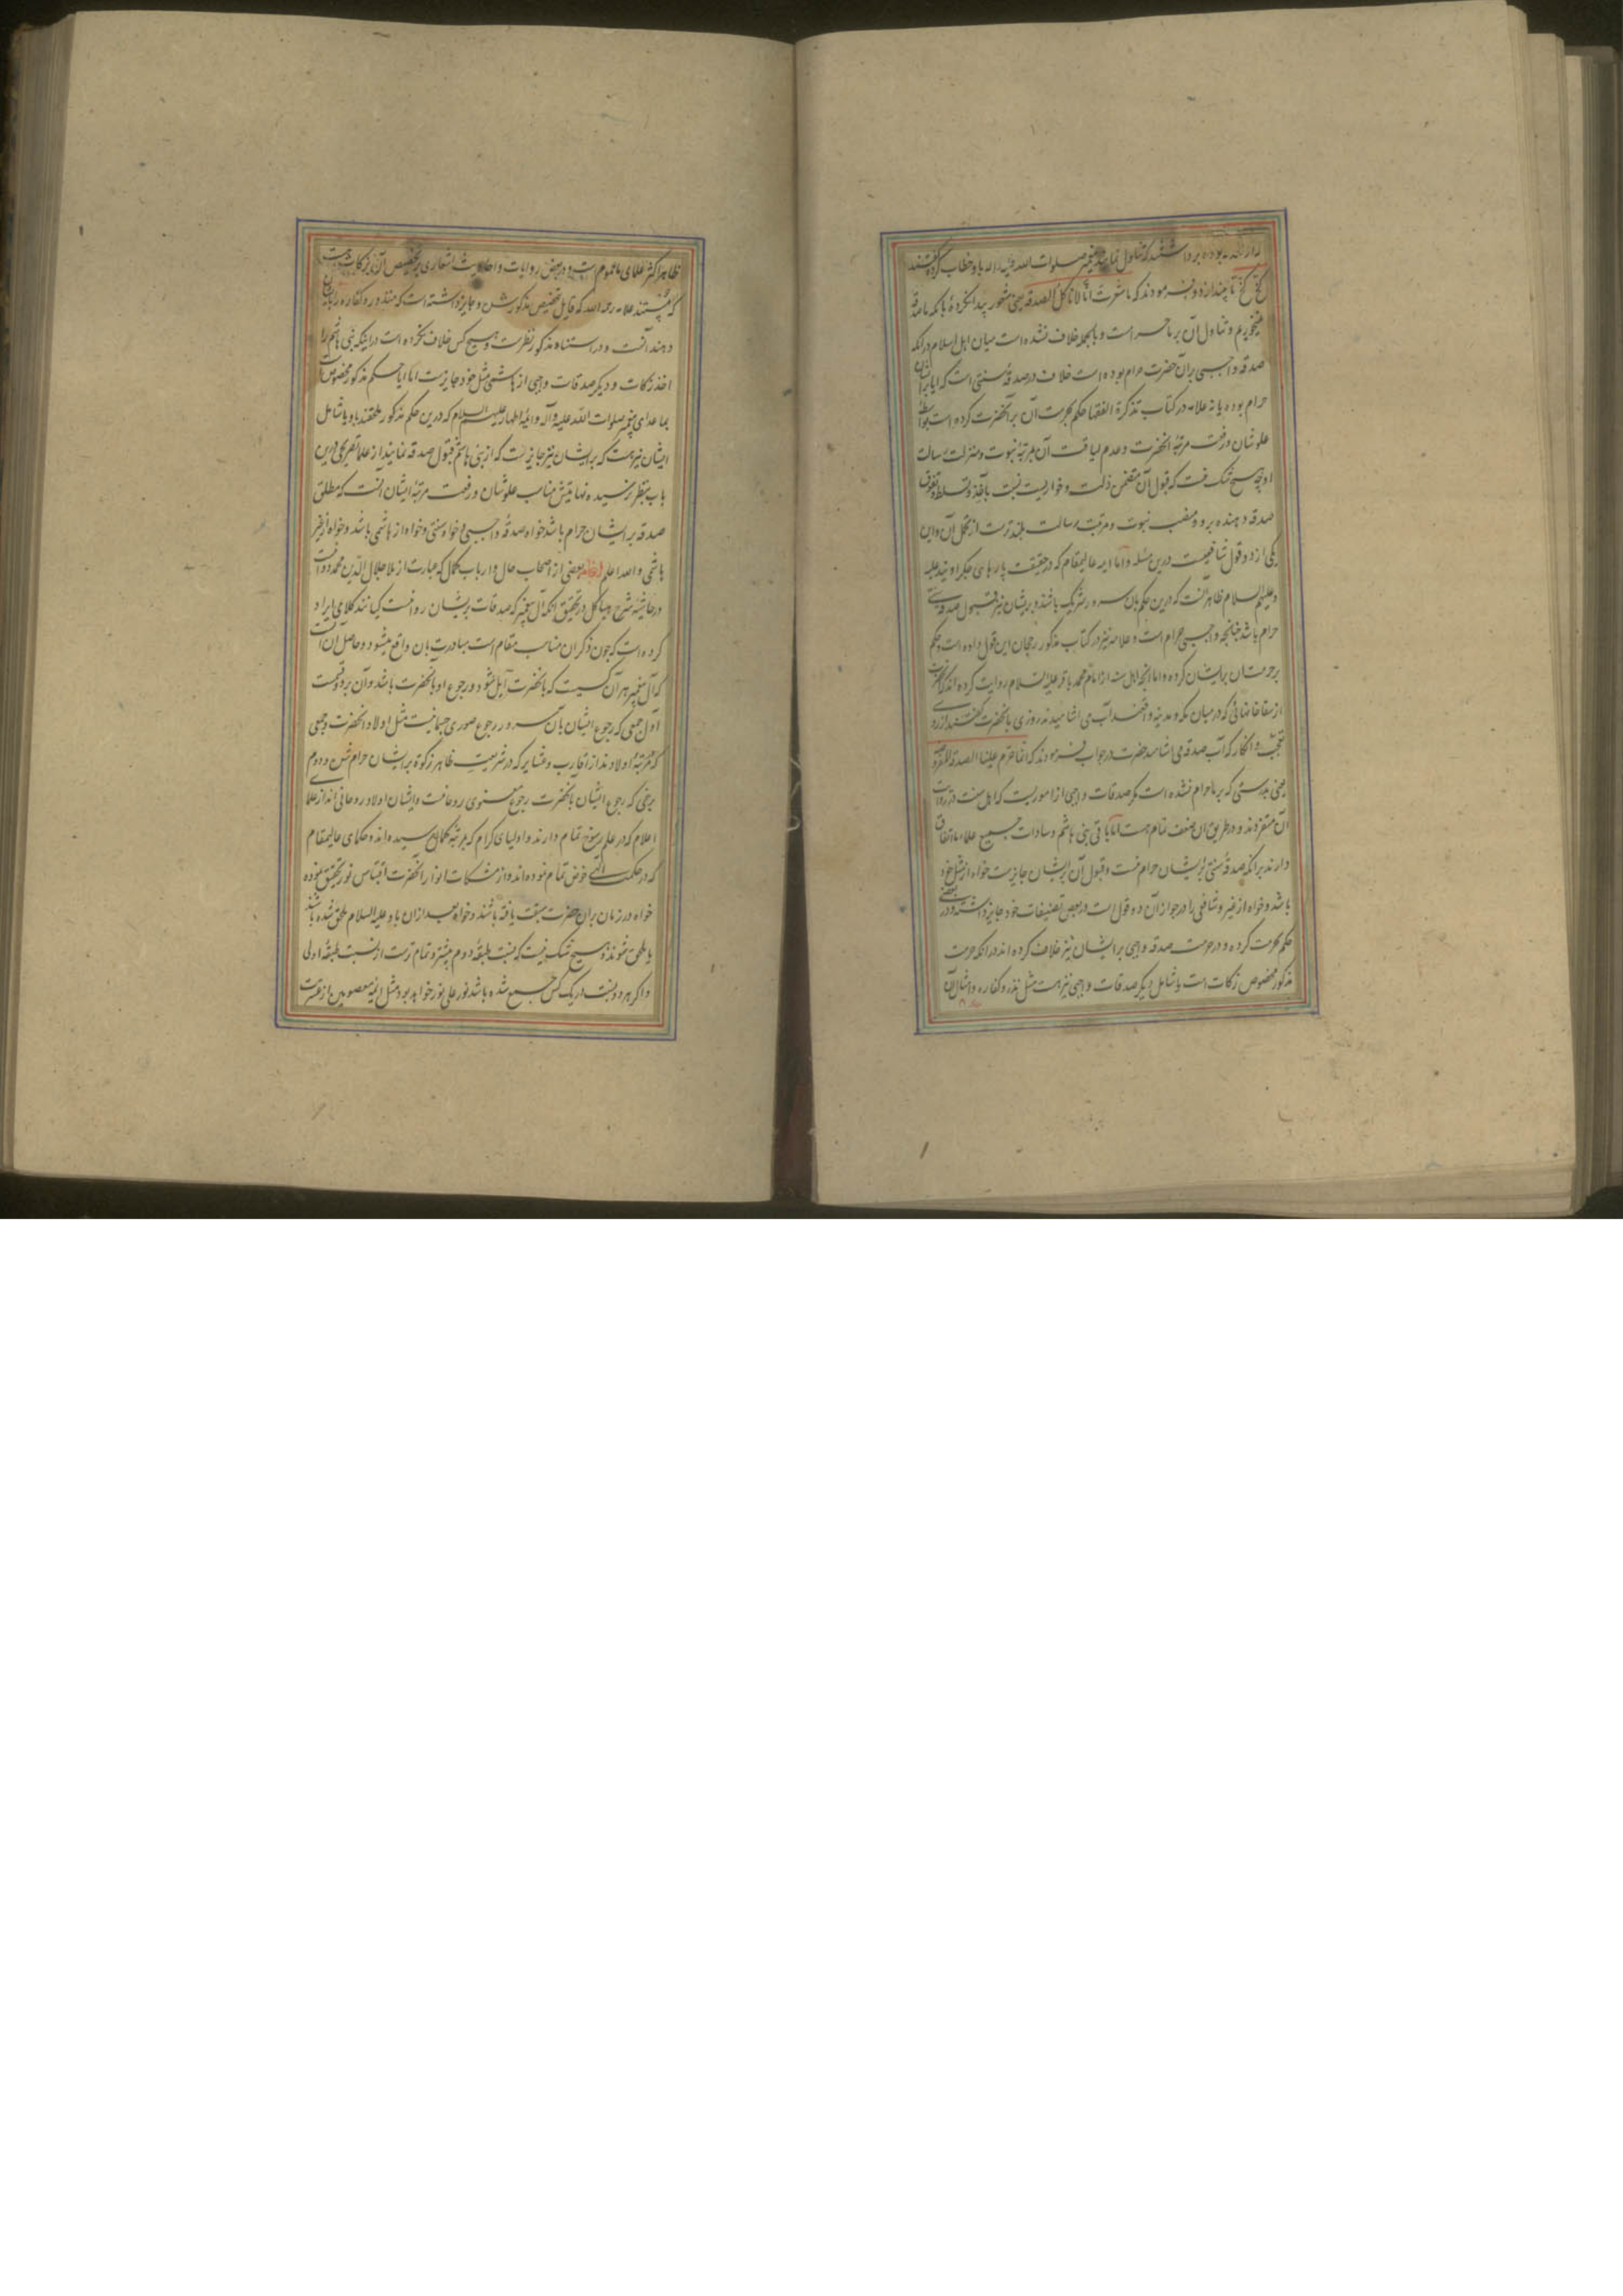 بوده برداشتند که تناول نمایند پیغمبر صلوات الله علیه و اله باو خطاب کرده گفتند
کخ کخ تا بیندازد و فرمودند که ما شعرت انا لا ناکل الصدقه یعنی شعور پیدا نکردهٔ بانکه ما صدقه
نمیخوریم و تناول آن بر ما حرام است و بالجمله خلاف نشده است میان اهل اسلام درانکه
صدقه واجبی بران حضرت حرام بوده است خلاف در صدقهٔ سنتی است که ایا برایشان
حرام بوده یا نه علامه در کتاب تذکرة الفقها حکم بحرمت آن بر آنحضرت کرده است بواسطهٔ
علو شان و رفعت مرتبهٔ انحضرت و عدم لیاقت آن بمرتبهٔ نبوت و منزلت رسالت
او چه هیچ شک نیست که قبول آن متضمن ذلت و خواریست نسبت باخذ و تسلط و تفوق
صدقه دهنده برو و منصب نبوت و مرتبت رسالت بلندترست از تحمل آن و این
یکی از دو قول شافعیست درین مسله و اما ایمه عالیمقام که در حقیقت پارهای جگر اویند علیه
و علیهم السلام ظاهر آنست که درین حکم بان سرور شریک باشند و بریشان نیز قبول صدقه سنتی
حرام باشد چنانچه واجبی حرام است و علامه نیز در کتاب مذکور رجحان این قول داده است و حکم
بر حرمت آن برایشان کرده و اما انچه اهل سنت از امام محمد باقر علیه السلام روایت کرده اند که آنحضرت
از سقاخانهائی که در میان مکه و مدینه واقعند آب می اشامیدند روزی بانحضرت گفتند از روی
تعجب و انکار که آب صدقه می اشامید حضرت در جواب فرمودند که انما حرم علینا الصدقة المفروضه
یعنی بدرستی که بر ما حرام نشده است مگر صدقات واجبی از اموریست که اهل سنت در روایت
آن متفردند و در طریق ان ضعف تمام هست اما باقی بنی هاشم و سادات جمیع علماء ما اتفاق
دارند بر انکه صدقهٔ سنتی بریشان حرام نیست و قبول آن بریشان جایزست خواه از مثل خود
باشد و خواه از غیر و شافعی را در جواز آن دو قول است در بعضی تصنیفات خود جایز داشته و در بعضی
حکم بحرمت کرده و در حرمت صدقه واجبی برایشان نیز خلاف کرده اند در انکه حرمت
مذکور مخصوص زکات است یا شامل دیگر صدقات واجبی نیز هست مثل نذر و کفاره و امثال آن
ظاهر اکثر علمای ما عموم است و در بعض روایات و احادیث اشعاری بر تخصیص آن بزکات هست
که مستند علامه رحمه الله که قایل بتخصیص مذکور شده و جایز داشته است که منذور و کفاره را بایشان
دهند آنست و در استناد مذکور نظرست و هیچ کس خلاف نکرده است در اینکه بنی هاشم را
اخذ زکات و دیگر صدقات واجبی از هاشمی مثل خود جایزست اما ایا حکم مذکور مخصوص است
بما عدای پیغمبر صلوات الله علیه و آله و ائمهٔ اطهار علیهم السلام که درین حکم مذکور ملحقند باو یا شامل
ایشان نیز هست که برایشان نیز جایزست که از بنی هاشم قبول صدقه نمایند از علما تصریحی درین
باب بنظر نرسیده نهایتش مناسب علو شان و رفعت مرتبهٔ ایشان آنست که مطلق
صدقه بر ایشان حرام باشد خواه صدقهٔ واجبی و خواه سنتی و خواه از هاشمی باشد و خواه از غیر
هاشمی و الله اعلم بعضی از اصحاب حال و ارباب کمال که عبارت از ملا جلال الدین محمد دوانیست
در حاشیهٔ شرح هیاکل در تحقیق انکه آل پیغمبر که صدقات بریشان روا نیست کیانند کلامی ایراد
کرده است که چون ذکر ان مناسب مقام است مبادرت بان واقع میشود و حاصل آن انست
که آل پیغمبر هر آن کسیست که بانحضرت آیل شود و رجوع او بانحضرت باشد و آن بر دو قسمست
اول جمعی که رجوع ایشان بآن سرور رجوع صوری جسمانیست مثل اولاد انحضرت و جمعی
که بمرتبهٔ اولادند از اقارب و عشایر که در شریعت ظاهر زکوة برایشان حرام شده و دوم
برخی که رجوع ایشان بانحضرت رجوع معنوی روحانیست و ایشان اولاد روحانی اند از علمای
اعلام که در علم رسوخ تمام دارند و اولیای کرام که بمرتبهٔ کمال رسیده اند و حکمای عالیمقام
که در حکمت الهی خوض تمام نموده اند و از مشکات انوار انحضرت اقتباس نور تحقیق نموده
خواه در زمان بران حضرت سبقت یافته باشند و خواه بعد ازان باو علیه السلام ملحق شده باشند
یا ملحق شوند و هیچ شک نیست که نسبت طبقهٔ دوم بیشتر و تمام ترست از نسبت طبقهٔ اولی
و اگر هر دو نسبت در یک کس جمع شده باشد نور علی نور خواهد بود مثل ائمهٔ معصومین از عترت